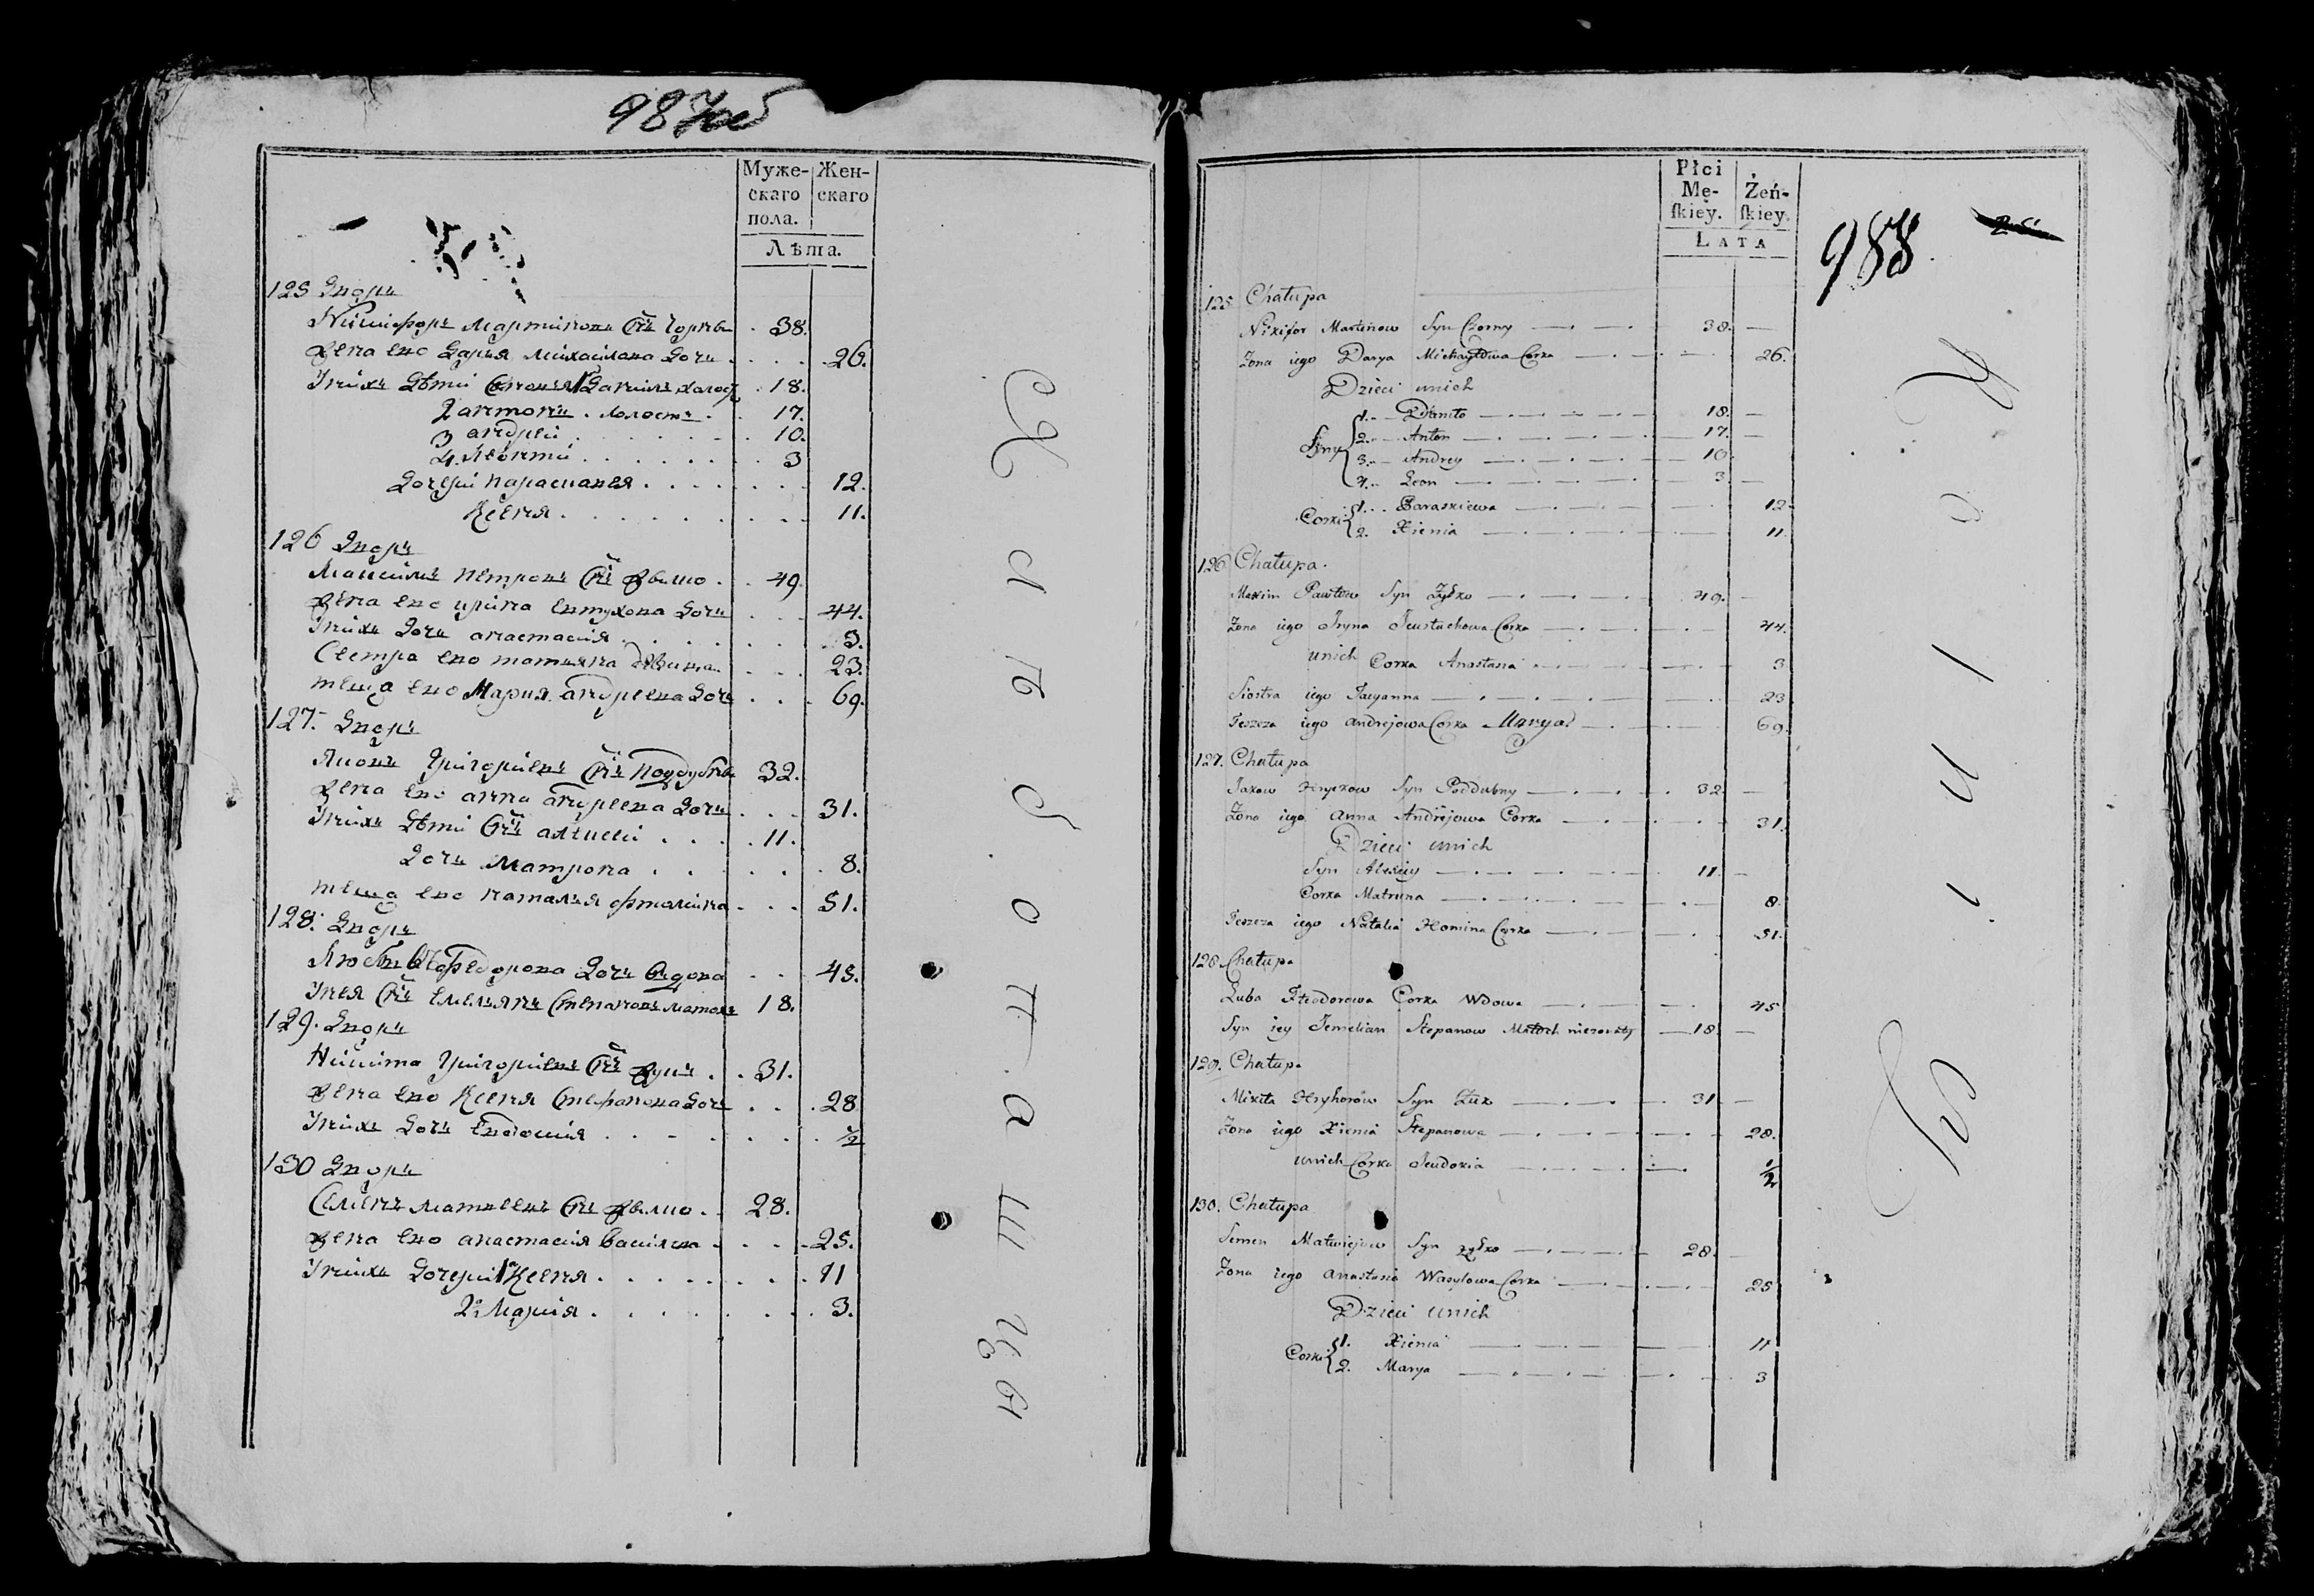 987об
Муже-
скаго
пола.
Жен-
скаго
Лѣта.
125 Дворъ
Никифоръ Мартиновъ Снъ Чорны 38.
Жена его Дарья Михайлова Дочь 26.
У нихъ дѣти 1 Данило холостъ 18.
2 антонъ холостъ 17.
3 андрей 10.
4. Леонтій 3
Дочери Парасковея 12.
Ксеня 11.
126 Дворъ
Максимъ Петровъ Снъ Жылко 49.
Жена его ирина Евтухова Дочь 44.
У нихъ Дочь анастасія 3.
Сестра его татьяна дѣвица 23.
теща его Мария андреева Дочь 69.
127. Дворъ
Яковъ Григориевъ Снъ Поддубны 32.
Жена его анна андреева Дочь 31.
У нихъ дѣти Снъ алексей 11.
Дочь Матрона 8.
теща его наталья 51.
128. Дворъ
Любовь Федорова Дочь вдова 45.
У нея Снъ Емельянъ Степановъ 18.
129. Дворъ
Никита Григориевъ Снъ Жукъ 31.
Жена его Ксеня Стефанова Дочь 28
У нихъ Дочь Евдокия ½
130 Дворъ
Семенъ Матвеевъ Снъ Жылко 28.
Жена его анастасия васильева 25.
У нихъ Дочери 1 Ксеня 11
2. Мария 3.
Płci
Mę-
ſkiey.
Żeń-
ſkiey.
LATA
988
25.
125. Chałupa
Nikifor Martinow Syn Czorny 38.
Zona iego Darya Michayłowa Corka 26.
Dzieci unich
Syny 1. Daniło 18.
2. Anton 17.
3. Andrey 10
4. Leon 3
Corki 1. Paraskiewa 12
2. Xienia 11
126 Chałupa.
Maxim Pawłow Syn Zyłko 49.
Zona iego Iryna Jeustachowa Corka 44.
unich Corka Anastasia 3
Siostra iego Tacyanna 23
Teszcza iego andrejowa Corka Marya 69.
127. Chałupa
Jakow Hryckow Syn Poddubny 32
Zona iego anna Andrejowa Corka 31.
Dzieci unich
Syn Alexiey 11
Corka Matruna 8
Teszcza iego Natalia Homina Corka 51.
128. Chałupa
Luba Fteodorowa Corka Wdowa 45
Syn iey Jemelian Stepanow Małoch niezonaty 18
129. Chałupa
Mikita Hryhorów Syn Zuk 31
Zona iego Xienia Stepanowa 28.
unich Corka Jeudokia ½
130. Chałupa
Semen Matwiejow Syn Zyłko 28
Zona iego anastasia Wasylowa Corka 25
Dzieci unich
Corki 1. Xienia 11
2. Marya 3